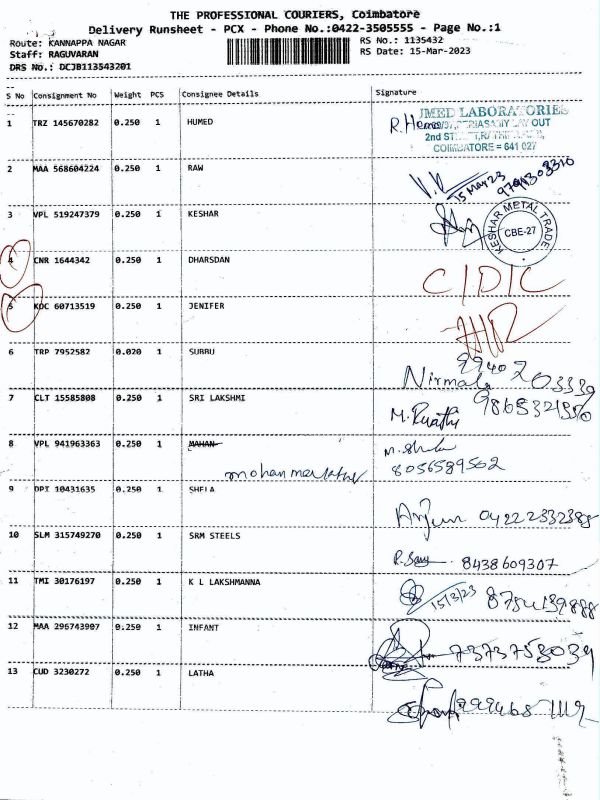 THE PROFESSIONAL COURIERS, Coimbatore
Delivery Runsheet - PCX - Phone No.:0422-3505555 - Page No.:1
Route: KANNAPPA NAGAR RS No.: 1135432
Staff: RAGUVARAN RS Date: 15-Mar-2023
DRS No.: DCJB113543201
S No Consignment No Weight PCS Consignee Details Signature
1 TRZ 145670282 0.250 1 HUMED R.Hema
LABORATORIES
LAY OUT
2nd
COIMBATORE = 641 027
2 MAA 568604224 0.250 1 RAW
15 Mar 23
3 VPL 519247379 0.250 1 KESHAR KESHAR METAL TRADE CBE-27
4 CNR 1644342 0.250 1 DHARSDAN C/D/C
5 KDC 60713519 0.250 1 JENIFER
6 TRP 7952582 0.020 1 SUBBU Nirmala 99402 03339
7 CLT 15585808 0.250 1 SRI LAKSHMI
8 VPL 941963363 0.250 1 MAHAN
8056589502
9 DPI 10431635 0.250 1 SHELA Arjun 04222332388
10 SLM 315749270 0.250 1 SRM STEELS 8438609307
11 TMI 30176197 0.250 1 K L LAKSHMANNA 15/3/23
12 MAA 296743907 0.250 1 INFANT 7373758039
13 CUD 3230272 0.250 1 LATHA